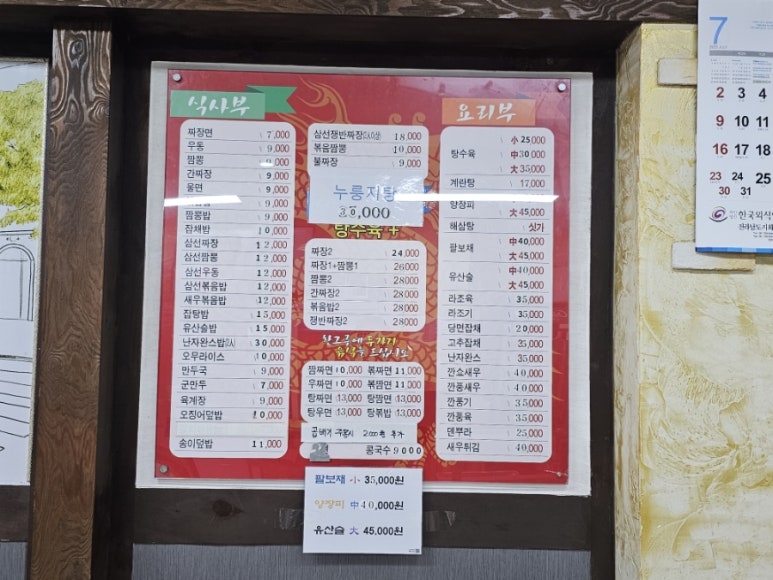 식사부
짜장면 7,000
우동 9,000
짬뽕 9,000
간짜장 9,000
울면 9,000
9,000
짬뽕밥 9,000
잡채밥 10,000
삼선짜장 12,000
삼선짬뽕 12,000
삼선우동 12,000
삼선볶음밥 12,000
새우볶음밥 12,000
잡탕밥 15,000
유산슬밥 15,000
난자완스밥 30,000
오무라이스 10,000
만두국 9,000
군만두 7,000
육계장 9,000
오징어덮밥 10,000
송이덮밥 11,000
삼선쟁반짜장 18,000
볶음짬뽕 10,000
불짜장 9,000
누룽지탕
30,000
탕수육+
짜장2 24,000
짜장1+짬뽕1 26000
짬뽕2 28000
간짜장2 28000
볶음밥2 28000
쟁반짜장2 28000
한그릇에 두가지
음식을 드십시오
짬짜면 10,000 볶짜면 11,000
우짜면 10,000 볶짬면 11,000
탕짜면 13,000 탕짬면 13,000
탕우면 13,000 탕볶밥 13,000
곱빼기 주문시 2000원 추가
콩국수 9000
요리부
小 25000
탕수육 中 30000
大 35,000
계란탕 17,000
양장피
大 45,000
해삼탕 싯가
팔보채 中 40,000
大 45,000
유산슬 中 40,000
大 45,000
라조육 35,000
라조기 35,000
당면잡채 20,000
고추잡채 35,000
난자완스 35,000
깐쇼새우 40,000
깐풍새우 40,000
깐풍기 35,000
깐풍육 35,000
덴뿌라 25,000
새우튀김 40,000
팔보채 小 35,000원
양장피 中 40,000원
유산슬 大 45,000원
7
2 3 4
9 10 11
16 17 18
23 24 25
30 31
한국외식
전라남도지회